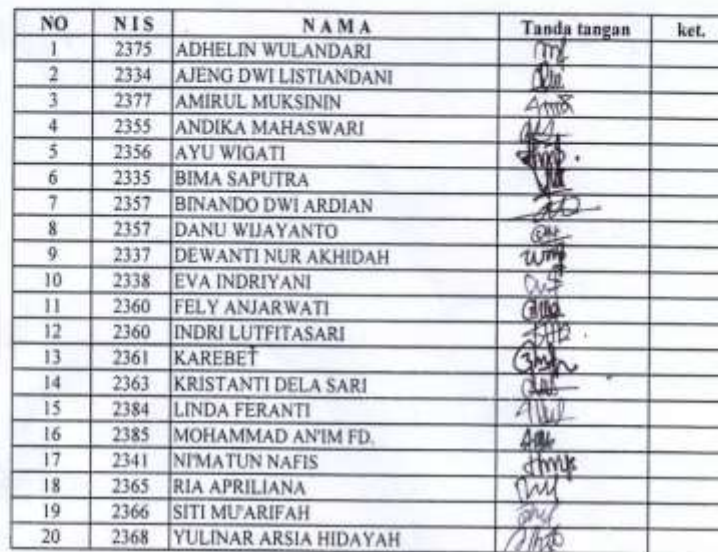 NO NIS NAMA Tanda tangan ket.
1 2375 ADHELIN WULANDARI
2 2334 AJENG DWI LISTIANDANI
3 2377 AMIRUL MUKSININ
4 2355 ANDIKA MAHASWARI
5 2356 AYU WIGATI
6 2335 BIMA SAPUTRA
7 2357 BINANDO DWI ARDIAN
8 2357 DANU WIJAYANTO
9 2337 DEWANTI NUR AKHIDAH
10 2338 EVA INDRIYANI
11 2360 FELY ANJARWATI
12 2360 INDRI LUTFITASARI
13 2361 KAREBET
14 2363 KRISTANTI DELA SARI
15 2384 LINDA FERANTI
16 2385 MOHAMMAD AN'IM FD.
17 2341 NI'MATUN NAFIS
18 2365 RIA APRILIANA
19 2366 SITI MU'ARIFAH
20 2368 YULINAR ARSIA HIDAYAH